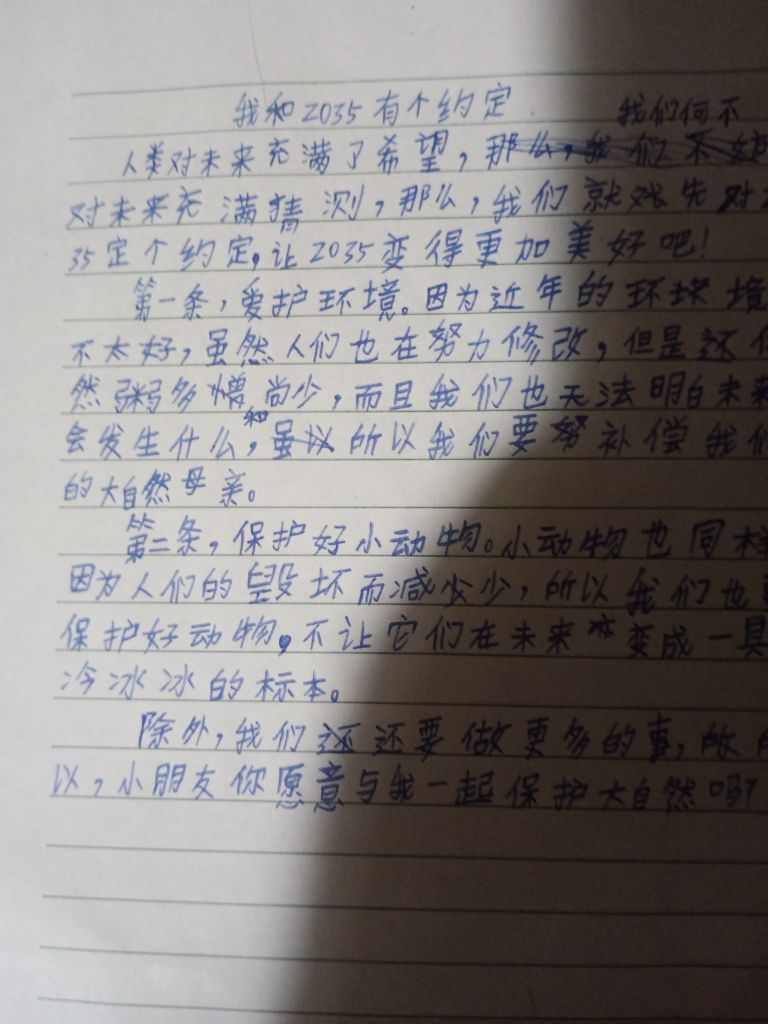 我和2035有个约定
我们何不
人类对未来充满了希望，那么，我们不
对未来充满猜测，那么，我们就先对
35定个约定，让2035变得更加美好吧！
第一条，爱护环境。因为近年的环境
不太好，虽然人们也在努力修改，但是还
然粥多僧尚少，而且我们也无法明白未来
会发生什么，和虽所以我们要努补偿我们
的大自然母亲。
第二条，保护好小动物。小动物也同样
因为人们的毁坏而减少少，所以我们也
保护好动物。不让它们在未来变成一具
冷冰冰的标本。
除外，我们还还要做更多的事，
以，小朋友你愿意与我一起保护大自然吗？